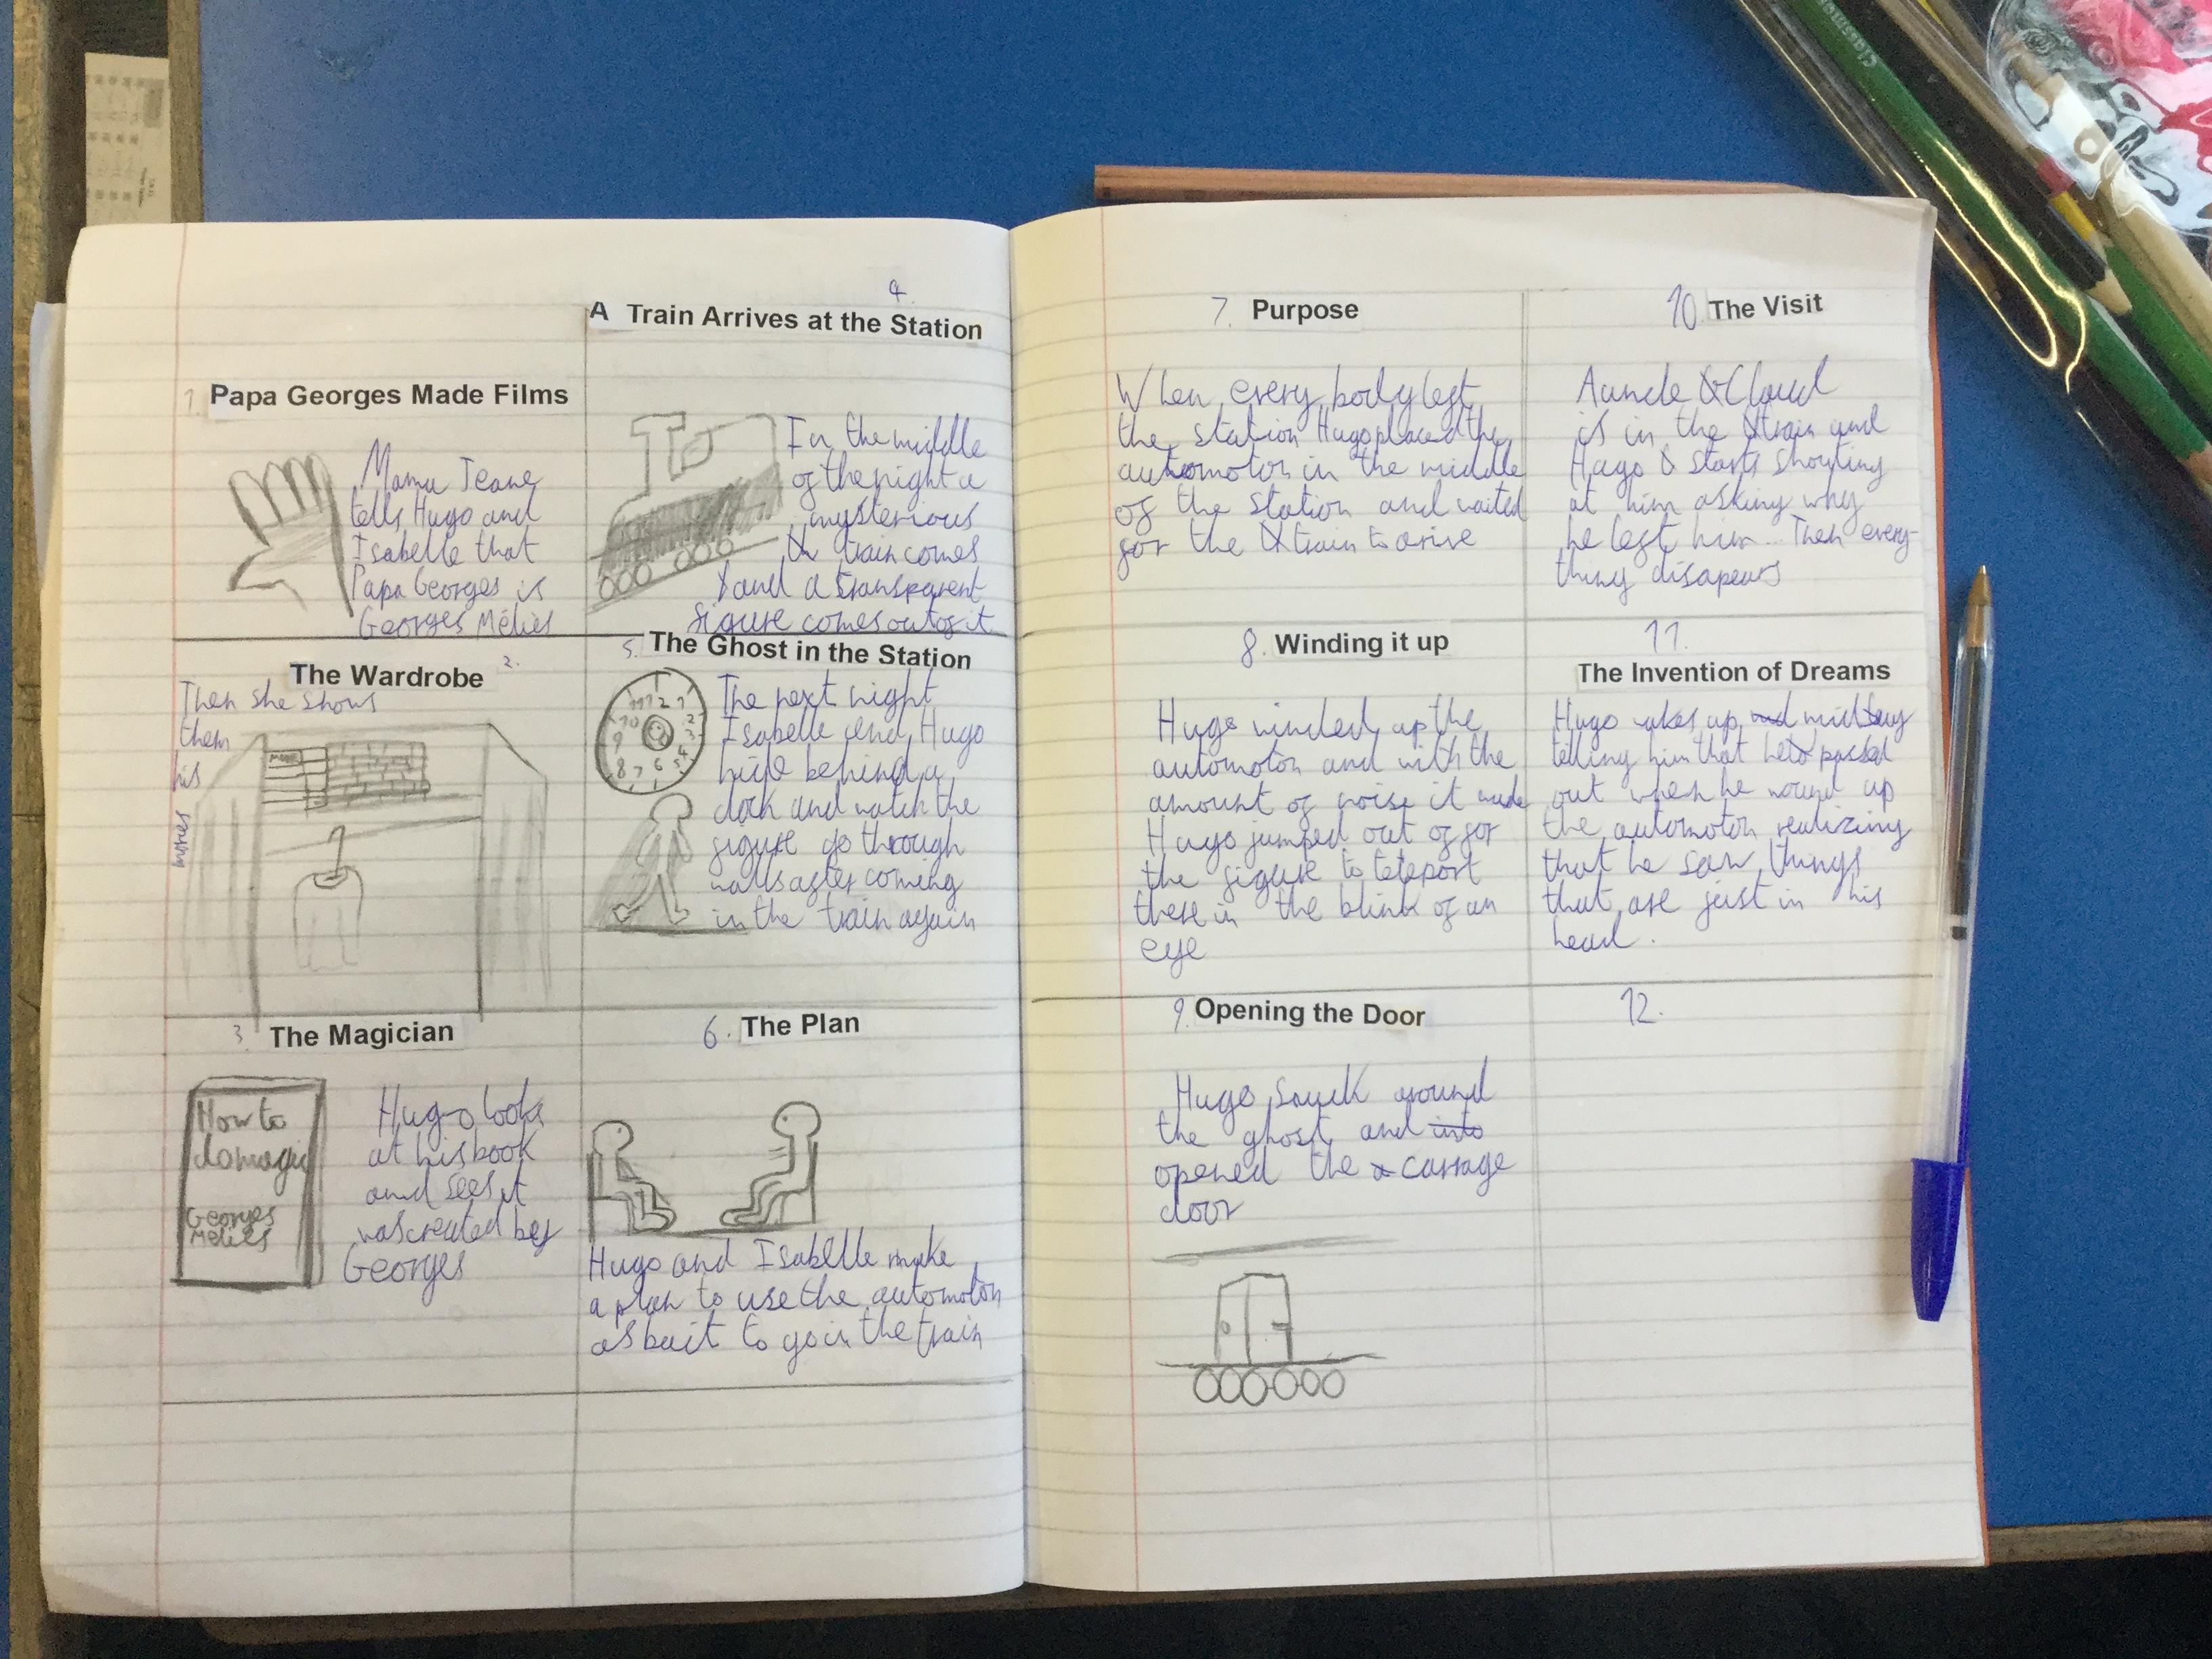 1. Papa Georges Made Films
Mama Jeane
tells Hugo and
Isabelle that
Papa Georges is
Georges Méliès
The Wardrobe 2.
Then she shows
them
his
movies
3. The Magician
How to
do magic
Georges
Méliès
Hugo looks
at his book
and sees it
was created by
Georges
4.
A Train Arrives at the Station
In the middle
of the night a
mysterious
train comes
and a transparent
figure comes out of it
5. The Ghost in the Station
The next night
Isabelle and Hugo
hide behind a
clock and watch the
figure go through
walls after coming
in the train again
6. The Plan
Hugo and Isabelle make
a plan to use the automoton
as bait to go in the train
7. Purpose
When every body left
the station Hugo placed the
automoton in the middle
of the station and waited
for the train to arive
8. Winding it up
Hugo winded up the
automoton and with the
amount of noise it made
Hugo jumped out of for
the figure to teleport
there in the blink of an
eye
9. Opening the Door
Hugo snuck around
the ghost and into
opened the carrage
door
10. The Visit
Auncle Cloud
is in the train and
Hugo starts shouting
at him asking why
he left him. Then every-
thing disapears
11.
The Invention of Dreams
Hugo wakes up
telling him that passed
out when he wound up
the automoton realizing
that he saw things
that are just in his
head.
12.